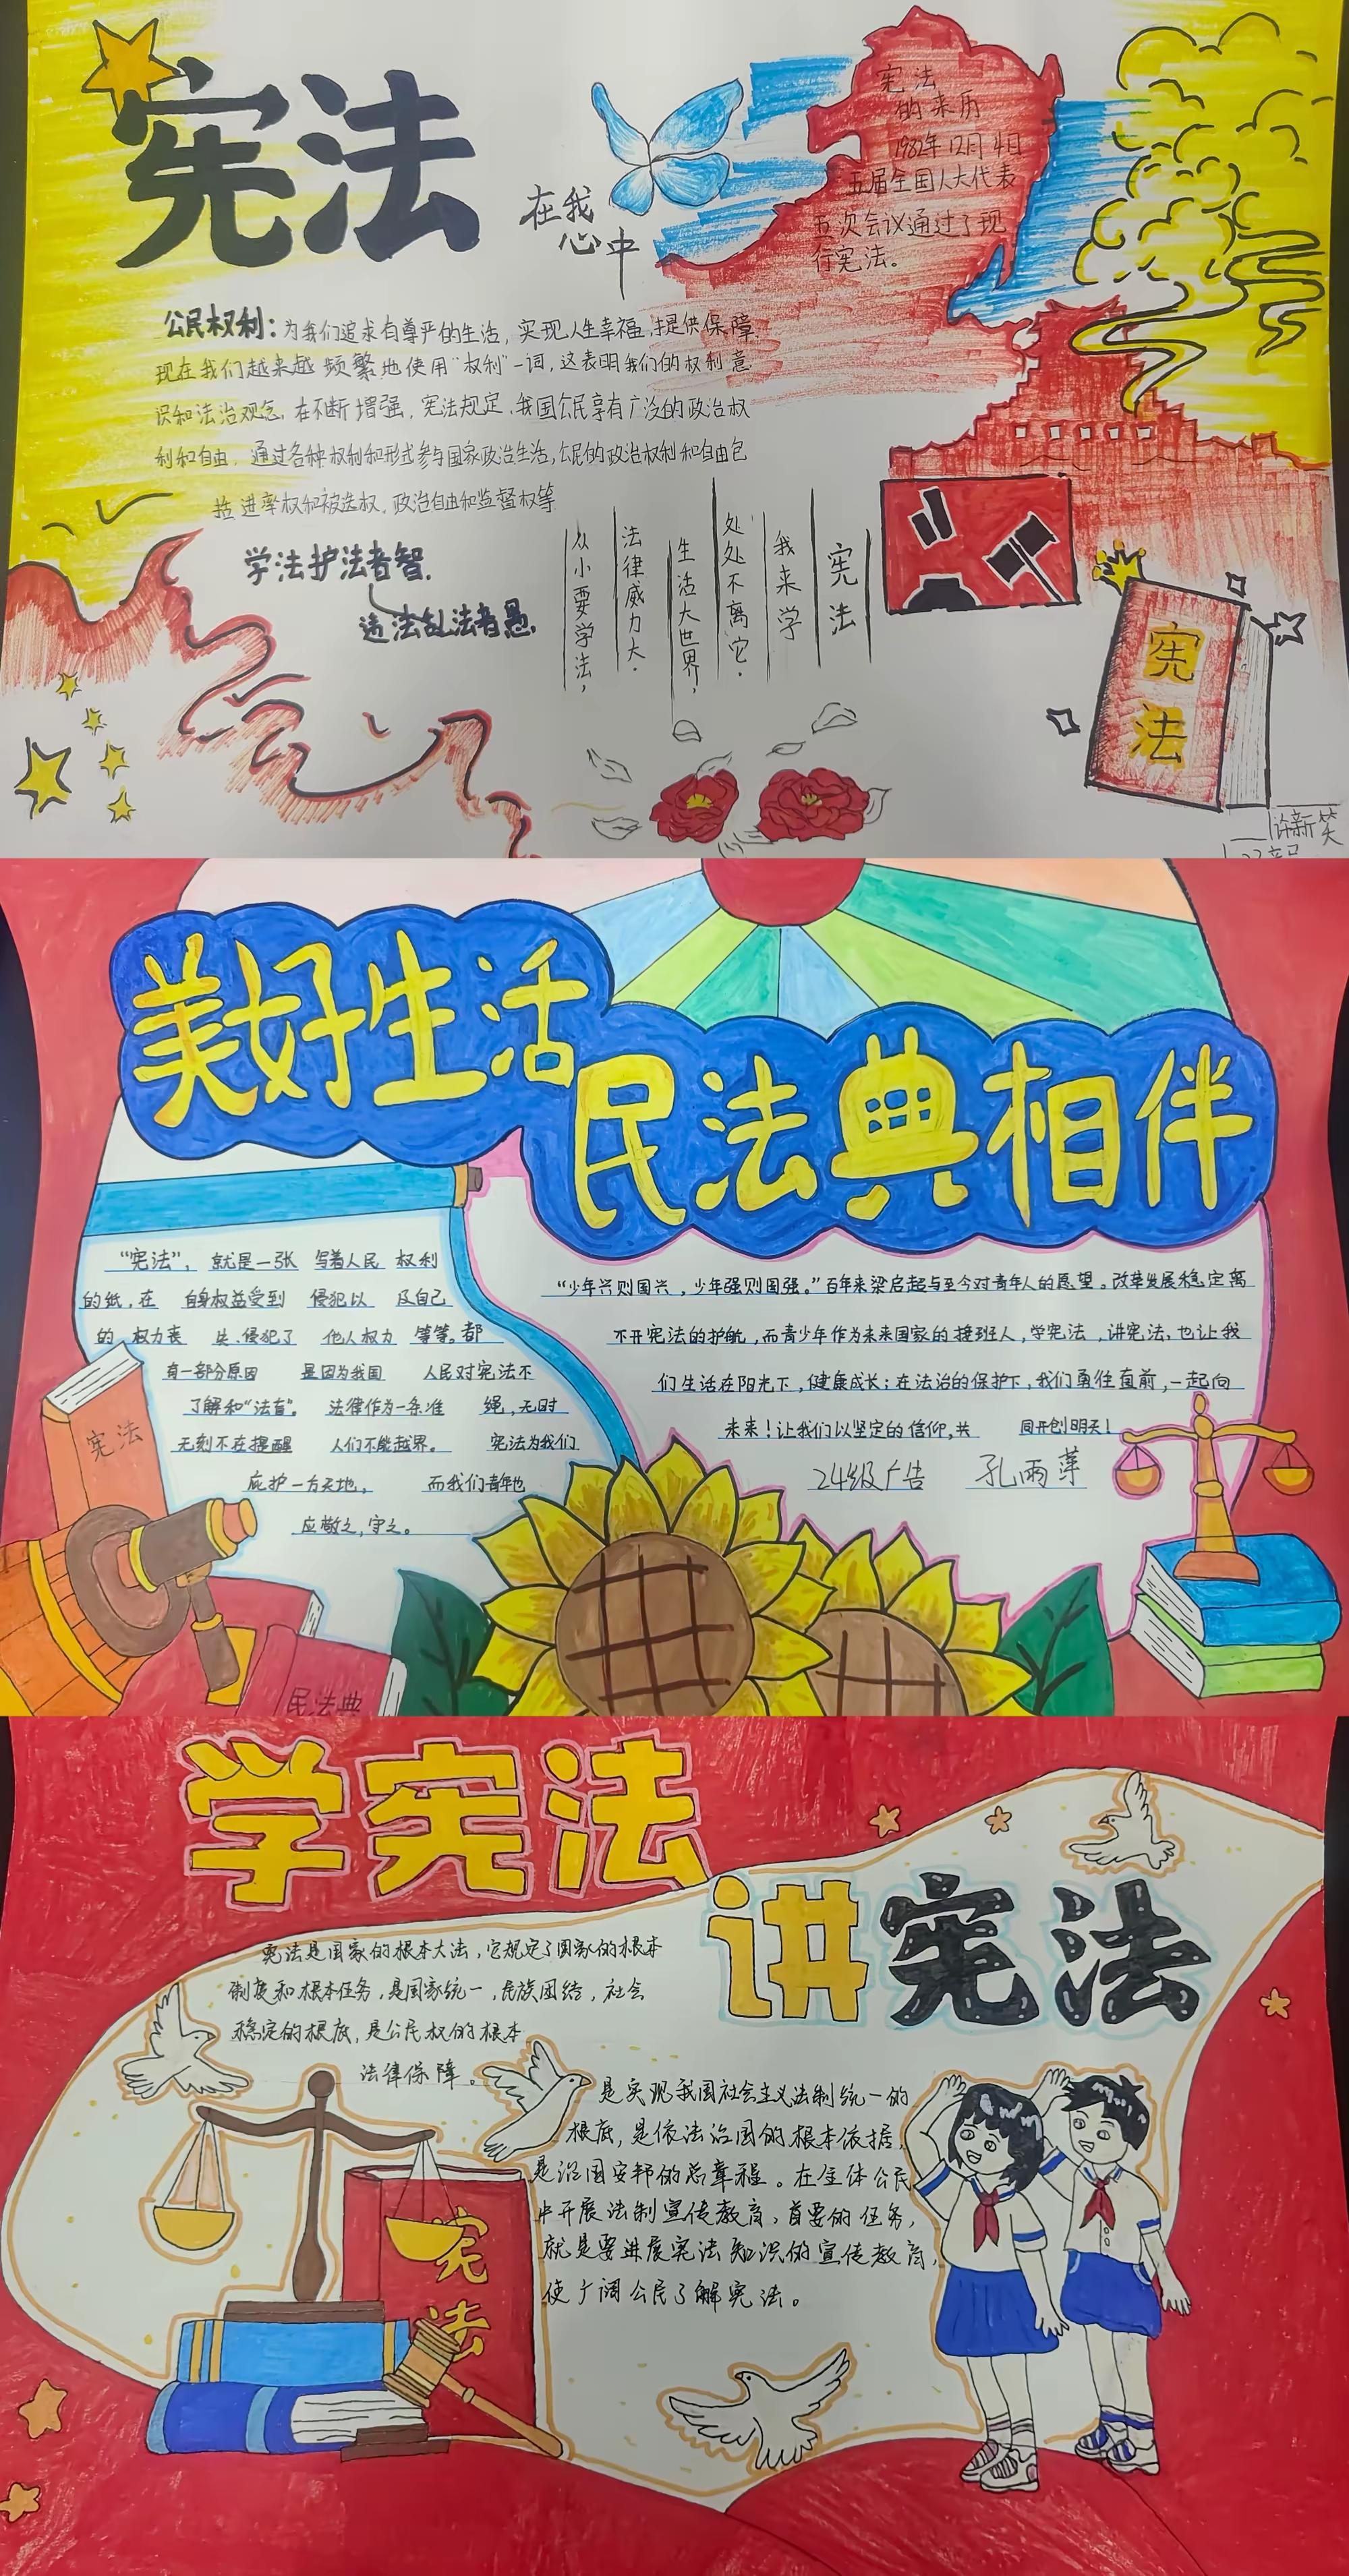 宪法
在我
心中
宪法
的来历
1982年12月4日
五届全国人大代表
五次会议通过了现
行宪法。
公民权利：为我们追求有尊严的生活，实现人生幸福，提供保障，
现在我们越来越频繁地使用“权利”一词，这表明我们的权利意
识和法治观念，在不断增强，宪法规定，我国公民享有广泛的政治权
利和自由，通过各种权利和形式参与国家政治生活，公民的政治权利和自由包
括进举权和被选权，政治自由和监督权等
学法护法者智，
违法乱法者愚，
宪法
我来学
处处不离它，
生活大世界，
法律威力大，
从小要学法，
宪法
许新笑
美好生活
民法典相伴
“宪法”，就是一张 写着人民 权利
的纸，在 自身权益受到 侵犯以 及自己
的 权力丧 失、侵犯了 他人权力 等等。都
有一部分原因 是因为我国 人民对宪法不
了解和“法盲”。 法律作为一条准 绳，无时
无刻不在提醒 人们不能越界。 宪法为我们
庇护一方天地， 而我们青年也
应敬之，守之。
“少年兴则国兴，少年强则国强。”百年来梁启超与至今对青年人的愿望。改革发展稳定离
不开宪法的护航，而青少年作为未来国家的接班人，学宪法，讲宪法，也让我
们生活在阳光下，健康成长；在法治的保护下，我们勇往直前，一起向
未来！让我们以坚定的信仰，共 同开创明天！
24级广告 孔雨萍
宪法
民法典
学宪法
讲宪法
宪法是国家的根本大法，它规定了国家的根本
制度和根本任务，是国家统一，民族团结，社会
稳定的根底，是公民权的根本
法律保障。
是实现我国社会主义法制统一的
根底，是依法治国的根本依据，
是治国安邦的总章程。在全体公民
中开展法制宣传教育，首要的任务，
就是要进展宪法知识的宣传教育，
使广阔公民了解宪法。
宪法